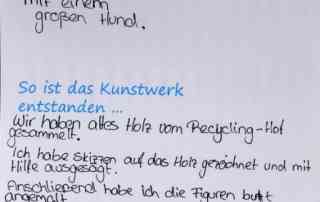 mit einem
großen Hund.
So ist das Kunstwerk
entstanden ...
Wir haben altes Holz vom Recycling-Hof
gesammelt.
Ich habe Skizzen auf das Holz gezeichnet und mit
Hilfe ausgesägt.
Anschließend habe ich die Figuren bunt
angemalt.